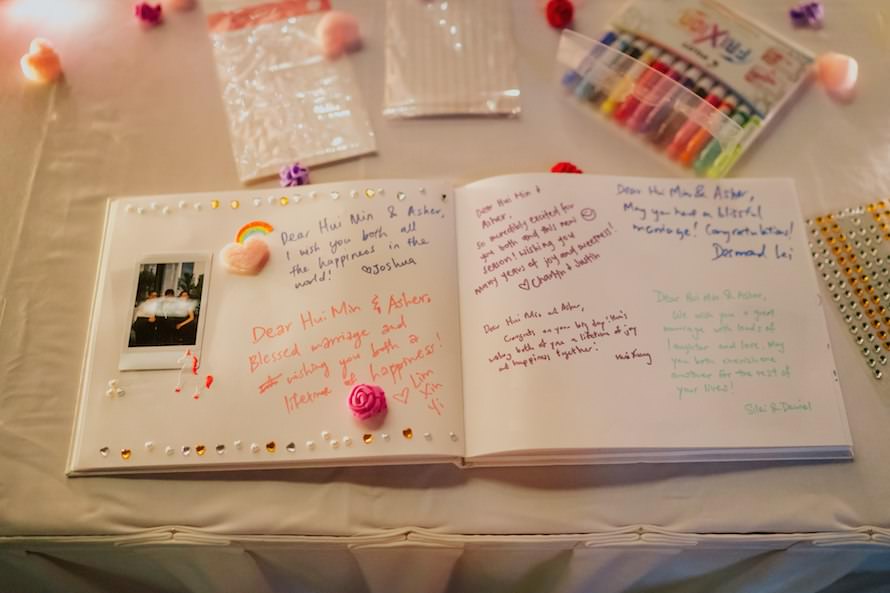 Dear Hui Min & Asher,
I wish you both all
the happiness in the
world!
♡Joshua
Dear Hui Min & Asher,
Blessed marriage and
wishing you both a
lifetime of happiness!
♡ Lim
Xin
Yi
Dear Hui Min &
Asher,
so incredibly excited for
you both and this new
season! Wishing you
many years of joy and sweetness!
♡ & Justin
Dear Hui Min and Asher,
Congrats on your big day! Here's
wishing both of you a lifetime of joy
and happiness together!
Dear Hui Min & Asher,
May you have a blissful
marriage! Congratulations!
Desmond Lei
Dear Hui Min & Asher,
We wish you a great
marriage with loads of
laughter and love. May
you both cherish one
another for the rest of
your lives!
& Daniel